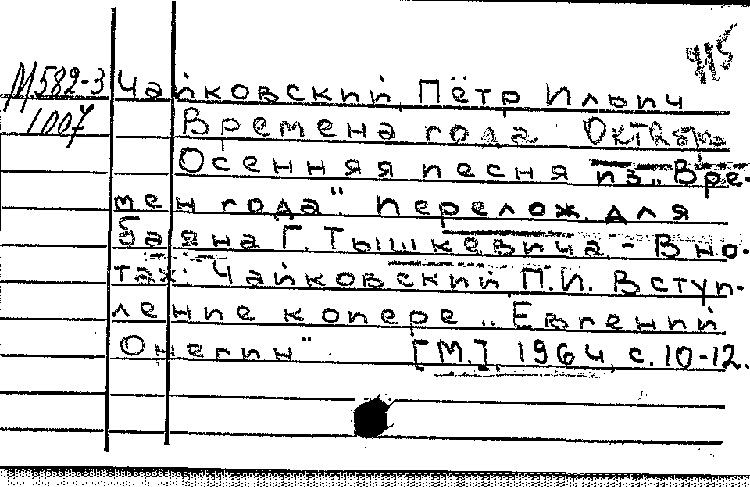 415
М582-3 Чайковский Пётр Ильич
1007 Времена года Октябрь
Осенняя песня из „Вре-
мен года". Перелож. для
баяна Г. Тышкевича - В но-
тах: Чайковский П.И. Вступ-
ление к опере „Евгений
Онегин" [М.], 1964, с. 10-12.